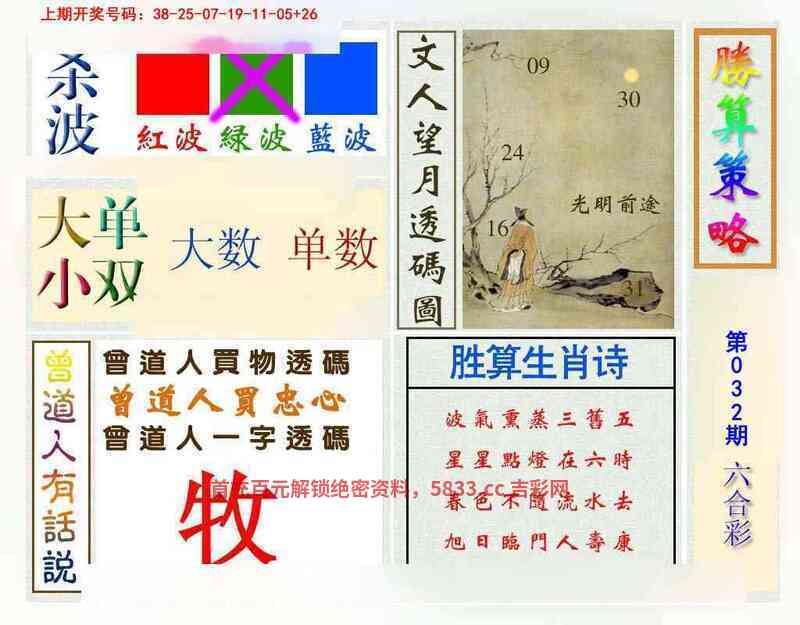 上期开奖号码：38-25-07-19-11-05+26
杀波
紅波 緑波 藍波
大单小双
大数 单数
曾道人有話説
曾道人買物透碼
曾道人買忠心
曾道人一字透碼
牧
首充百元解锁绝密资料，5833.cc 吉彩网
文人望月透碼圖
09
30
24
光明前途
16
31
胜算生肖诗
波氣熏蒸三舊五
星星點燈在六時
春色不隨流水去
旭日臨門人壽康
勝算策略
第032期
六合彩